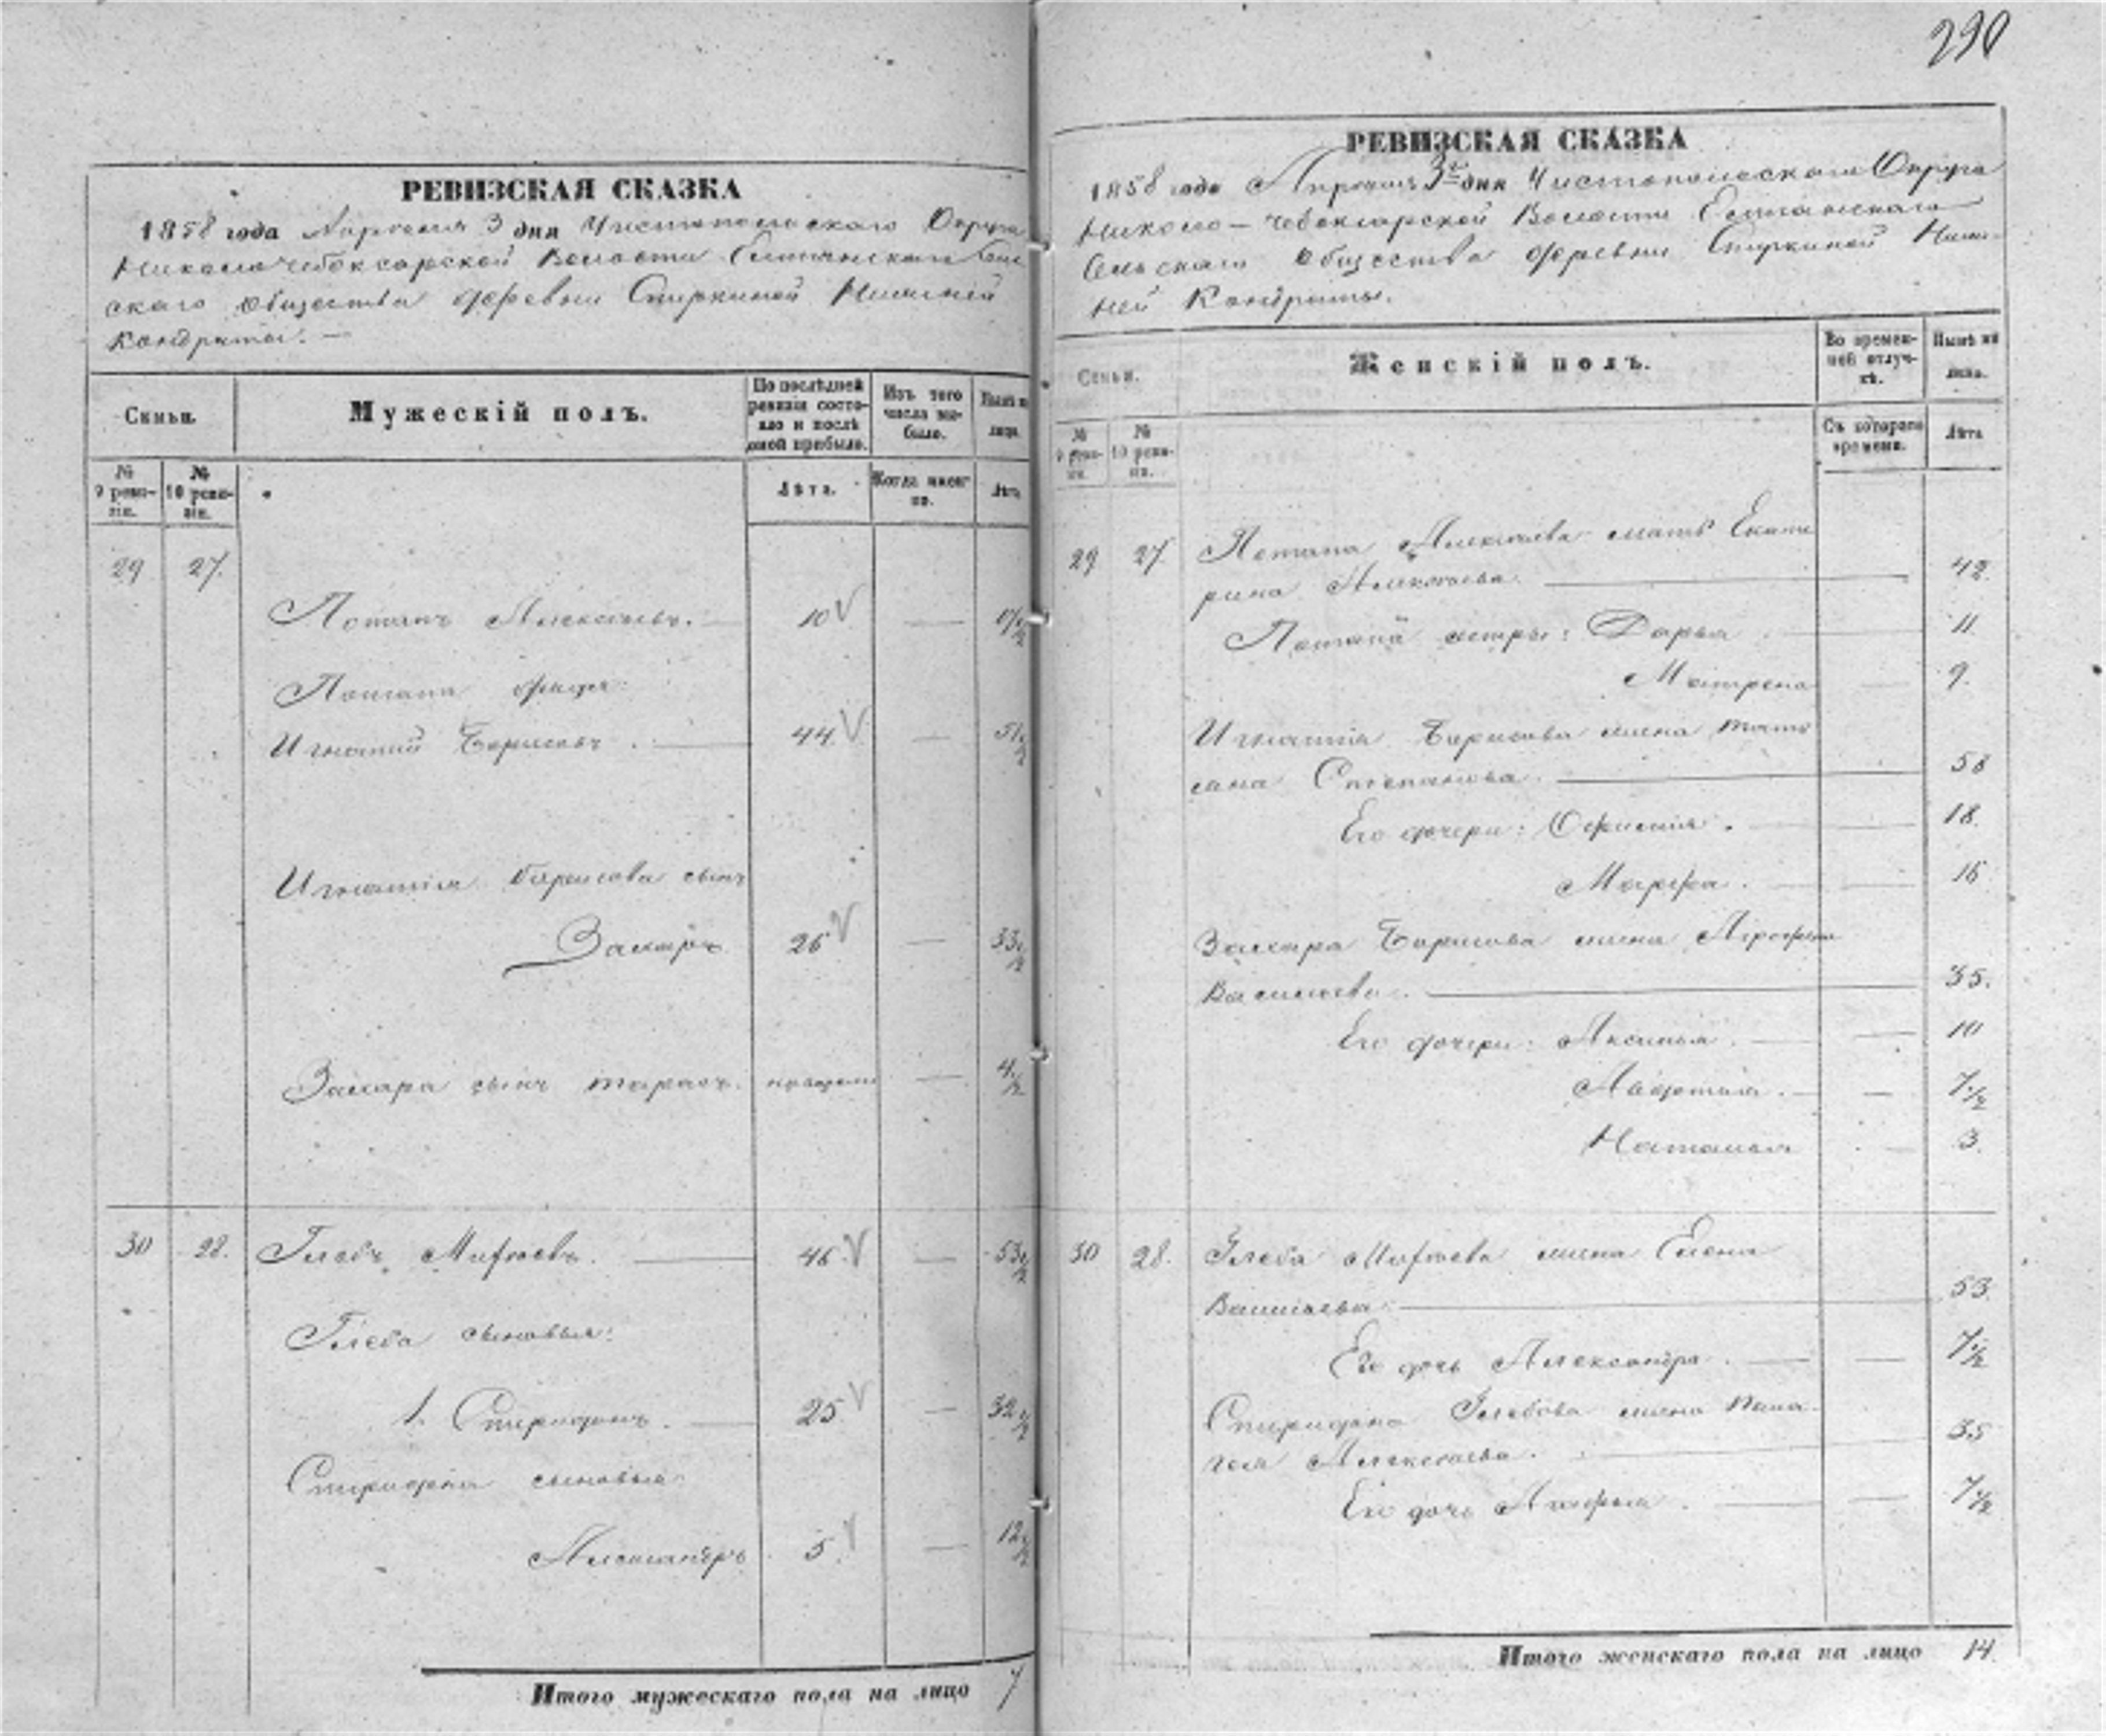 290
РЕВИЗСКАЯ СКАЗКА
1858 года Апреля 3 дня Чистопольскаго Округа
Николочебоксарской Волости Елтанскаго Сель
скаго общества деревни Спиркиной Нижней
Кондраты. —
Семьи.
Мужескій полъ.
По послѣдней ревизіи состояло и послѣ оной прибыло.
Изъ того числа выбыло.
Нынѣ на лицо.
№ 9 ревизіи.
№ 10 ревизіи.
Лѣта.
Когда именно.
Лѣта
29 27.
Потапъ Алексѣевъ. — 10 V —
Потапа дядя:
Игнатій Борисовъ. — 44 V — 51 1/2
Игнатія Борисова сынъ
Захаръ 26 V — 33 1/2
Захара сынъ Тарасъ. — 4 1/2
30 28. Глебъ Мифѣевъ. — 46 V — 53 1/2
Глеба сыновья:
1. Спиридонъ. — 25 V — 32 1/2
Спиридона сыновья
Александръ 5 V — 12 1/2
Итого мужескаго пола на лицо 7
РЕВИЗСКАЯ СКАЗКА
1858 года Апреля 3го дня Чистопольскаго Округа
Николо-чебоксарской Волости Елтанскаго
Сельскаго общества деревни Спиркиной Ниж-
ней Кондраты.
Семьи.
Женскій полъ.
Во временной отлучкѣ.
Нынѣ на лицо.
№ 9 ревизіи.
№ 10 ревизіи.
Съ котораго времени.
Лѣта
29 27. Потапа Алексѣева мать Екате
рина Алексѣева. — 42.
Потапа сестры: Дарья — 11
Матрена — 9.
Игнатія Борисова жена Тать
яна Степанова. — 58
Его дочери: Офимія. — 18.
Марфа. — — 16
Захара Борисова жена Аграфена
Васильева. — 35.
Его дочери: Аксинья. — — 10
Авдотья. — — 7 1/2
Наталья — 3.
30 28. Глеба Мифѣева жена Елена
Васильева. — 53.
Его дочь Александра. — — 7 1/2
Спиридона Глебова жена Пела-
гея Алексѣева. — 35
Его дочь — — 7 1/2
Итого женскаго пола на лицо 14